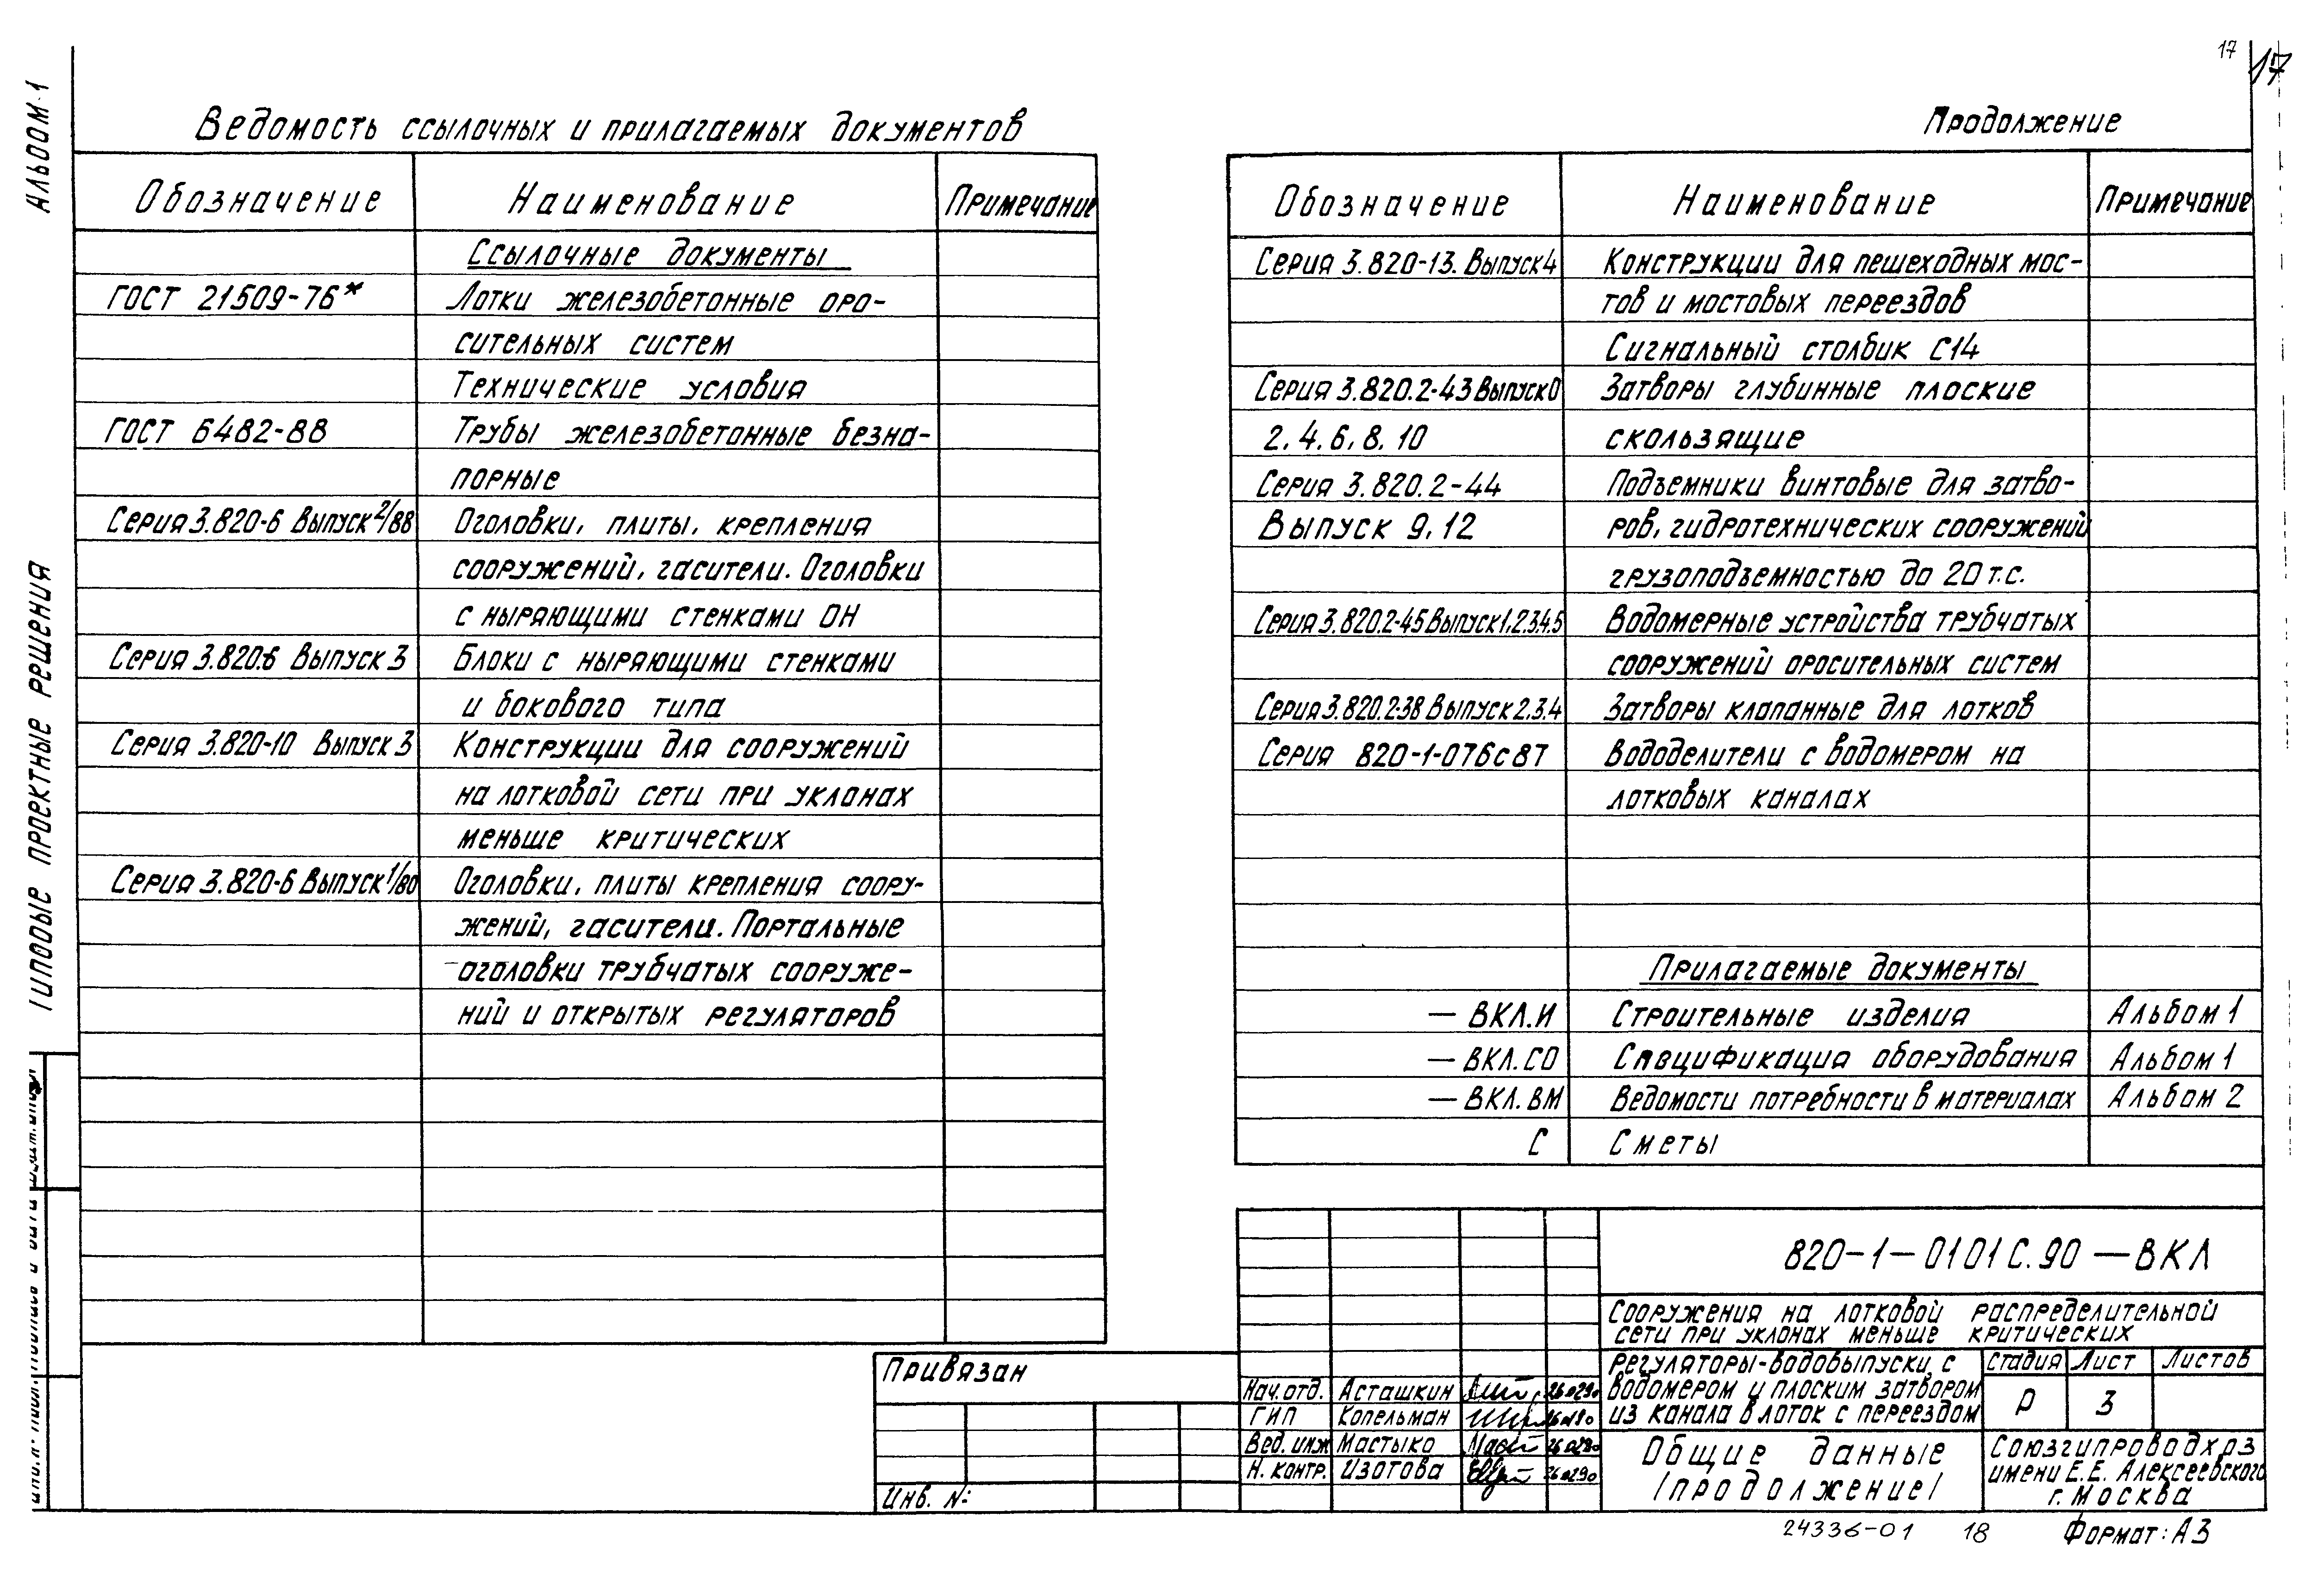 17
17
Альбом 1
Типовые проектные решения
Ведомость ссылочных и прилагаемых документов
Обозначение Наименование Примечание
Ссылочные документы
ГОСТ 21509-76* Лотки железобетонные оро-
сительных систем
Технические условия
ГОСТ 6482-88 Трубы железобетонные безна-
порные
Серия 3.820-6 Выпуск 2/88 Оголовки, плиты, крепления
сооружений, гасители. Оголовки
с ныряющими стенками ОН
Серия 3.820-6 Выпуск 3 Блоки с ныряющими стенками
и бокового типа
Серия 3.820-10 Выпуск 3 Конструкции для сооружений
на лотковой сети при уклонах
меньше критических
Серия 3.820-6 Выпуск 1/80 Оголовки, плиты крепления соору-
жений, гасители. Портальные
оголовки трубчатых сооруже-
ний и открытых регуляторов
Продолжение
Обозначение Наименование Примечание
Серия 3.820-13. Выпуск 4 Конструкции для пешеходных мос-
тов и мостовых переездов
Сигнальный столбик С14
Серия 3.820.2-43 Выпуск 0 Затворы глубинные плоские
2.4.6.8.10 скользящие
Серия 3.820.2-44 Подъемники винтовые для затво-
Выпуск 9.12 ров, гидротехнических сооружений
грузоподъемностью до 20 т.с.
Серия 3.820.2-45 Выпуск 1.2.3.4.5 Водомерные устройства трубчатых
сооружений оросительных систем
Серия 3.820.2-38 Выпуск 2.3.4 Затворы клапанные для лотков
Серия 820-1-076с87 Вододелители с водомером на
лотковых каналах
Прилагаемые документы
— ВКЛ.И Строительные изделия Альбом 1
— ВКЛ.СО Спецификация оборудования Альбом 1
— ВКЛ.ВМ Ведомости потребности в материалах Альбом 2
С Сметы
820-1-0101С.90 — ВКЛ
Сооружения на лотковой распределительной
сети при уклонах меньше критических
Регуляторы-водовыпуски с
водомером и плоским затвором
из канала в лоток с переездом
Стадия Лист Листов
Р 3
Общие данные
/продолжение/
Союзгипроводхоз
имени Е.Е. Алексеевского
г. Москва
Привязан
Инв. №:
Нач. отд. Асташкин 26.02.90
ГИП Копельман
Вед. инж Мастыко 26.02.90
Н. контр. Изотова 26.02.90
24336-01 18
Формат: А3